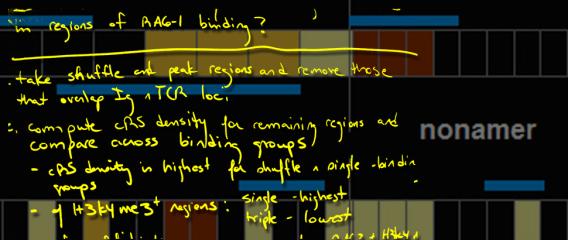 in regions of RAG-1 binding?
. take shuffle and peak regions and remove those
that overlap Ig + TCR loci
compute cRS density for remaining regions and
compare across binding groups
nonamer
- cRS density is highest for shuffle + single-bindin
groups
- of H3k4me3+ regions: single - highest
triple - lowest